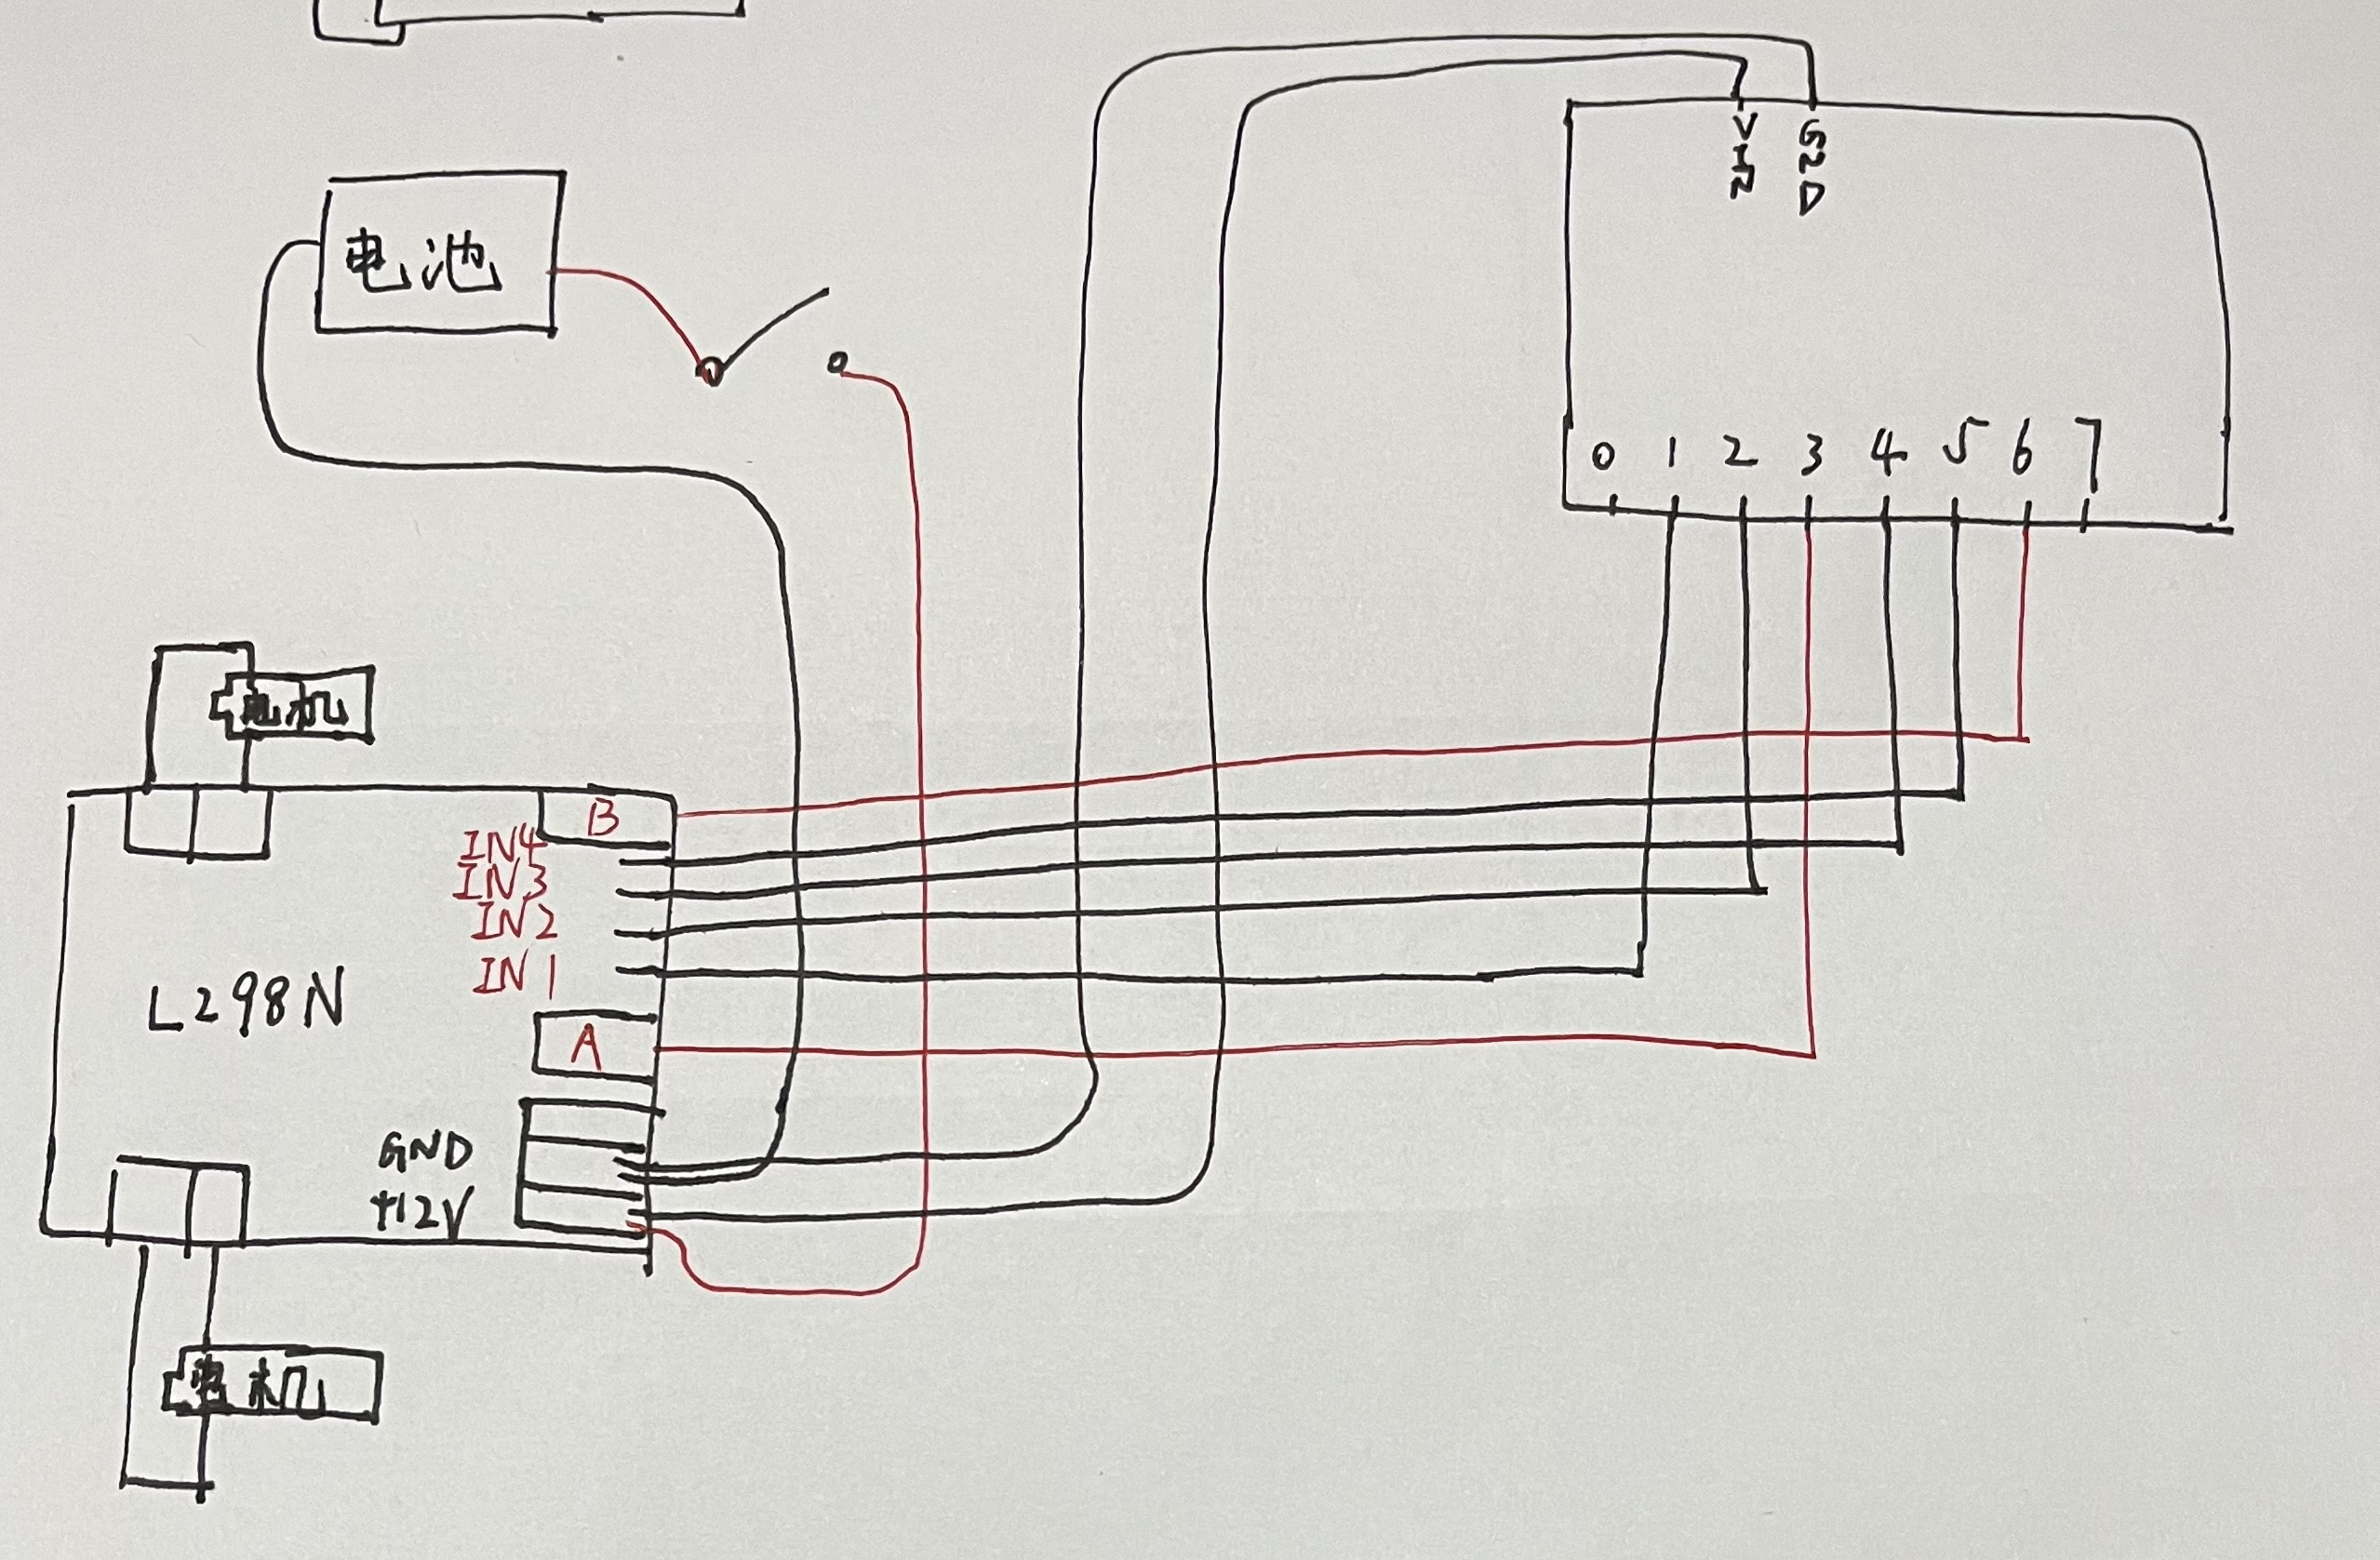 VIN
GND
电池
0 1 2 3 4 5 6 7
电机
B
IN4
IN3
IN2
IN1
L298N
A
GND
+12V
电机